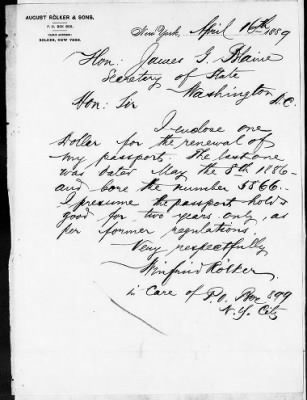 AUGUST RÖLKER & SONS,
P. O. BOX 899
RÖLKER, NEW YORK.
New York, April 16th 1889
Hon: James G. Blaine
Secretary of State
Washington D.C.
Hon: Sir
I enclose one
Dollar for the renewal of
my passport. The last one
was dated May the 8th 1886
and bore the number 5566.
I presume the passport holds
good for two years only, as
per former regulations.
Very respectfully
Winfrid Rölker
in Care of P.O. Box 899
N.Y. City